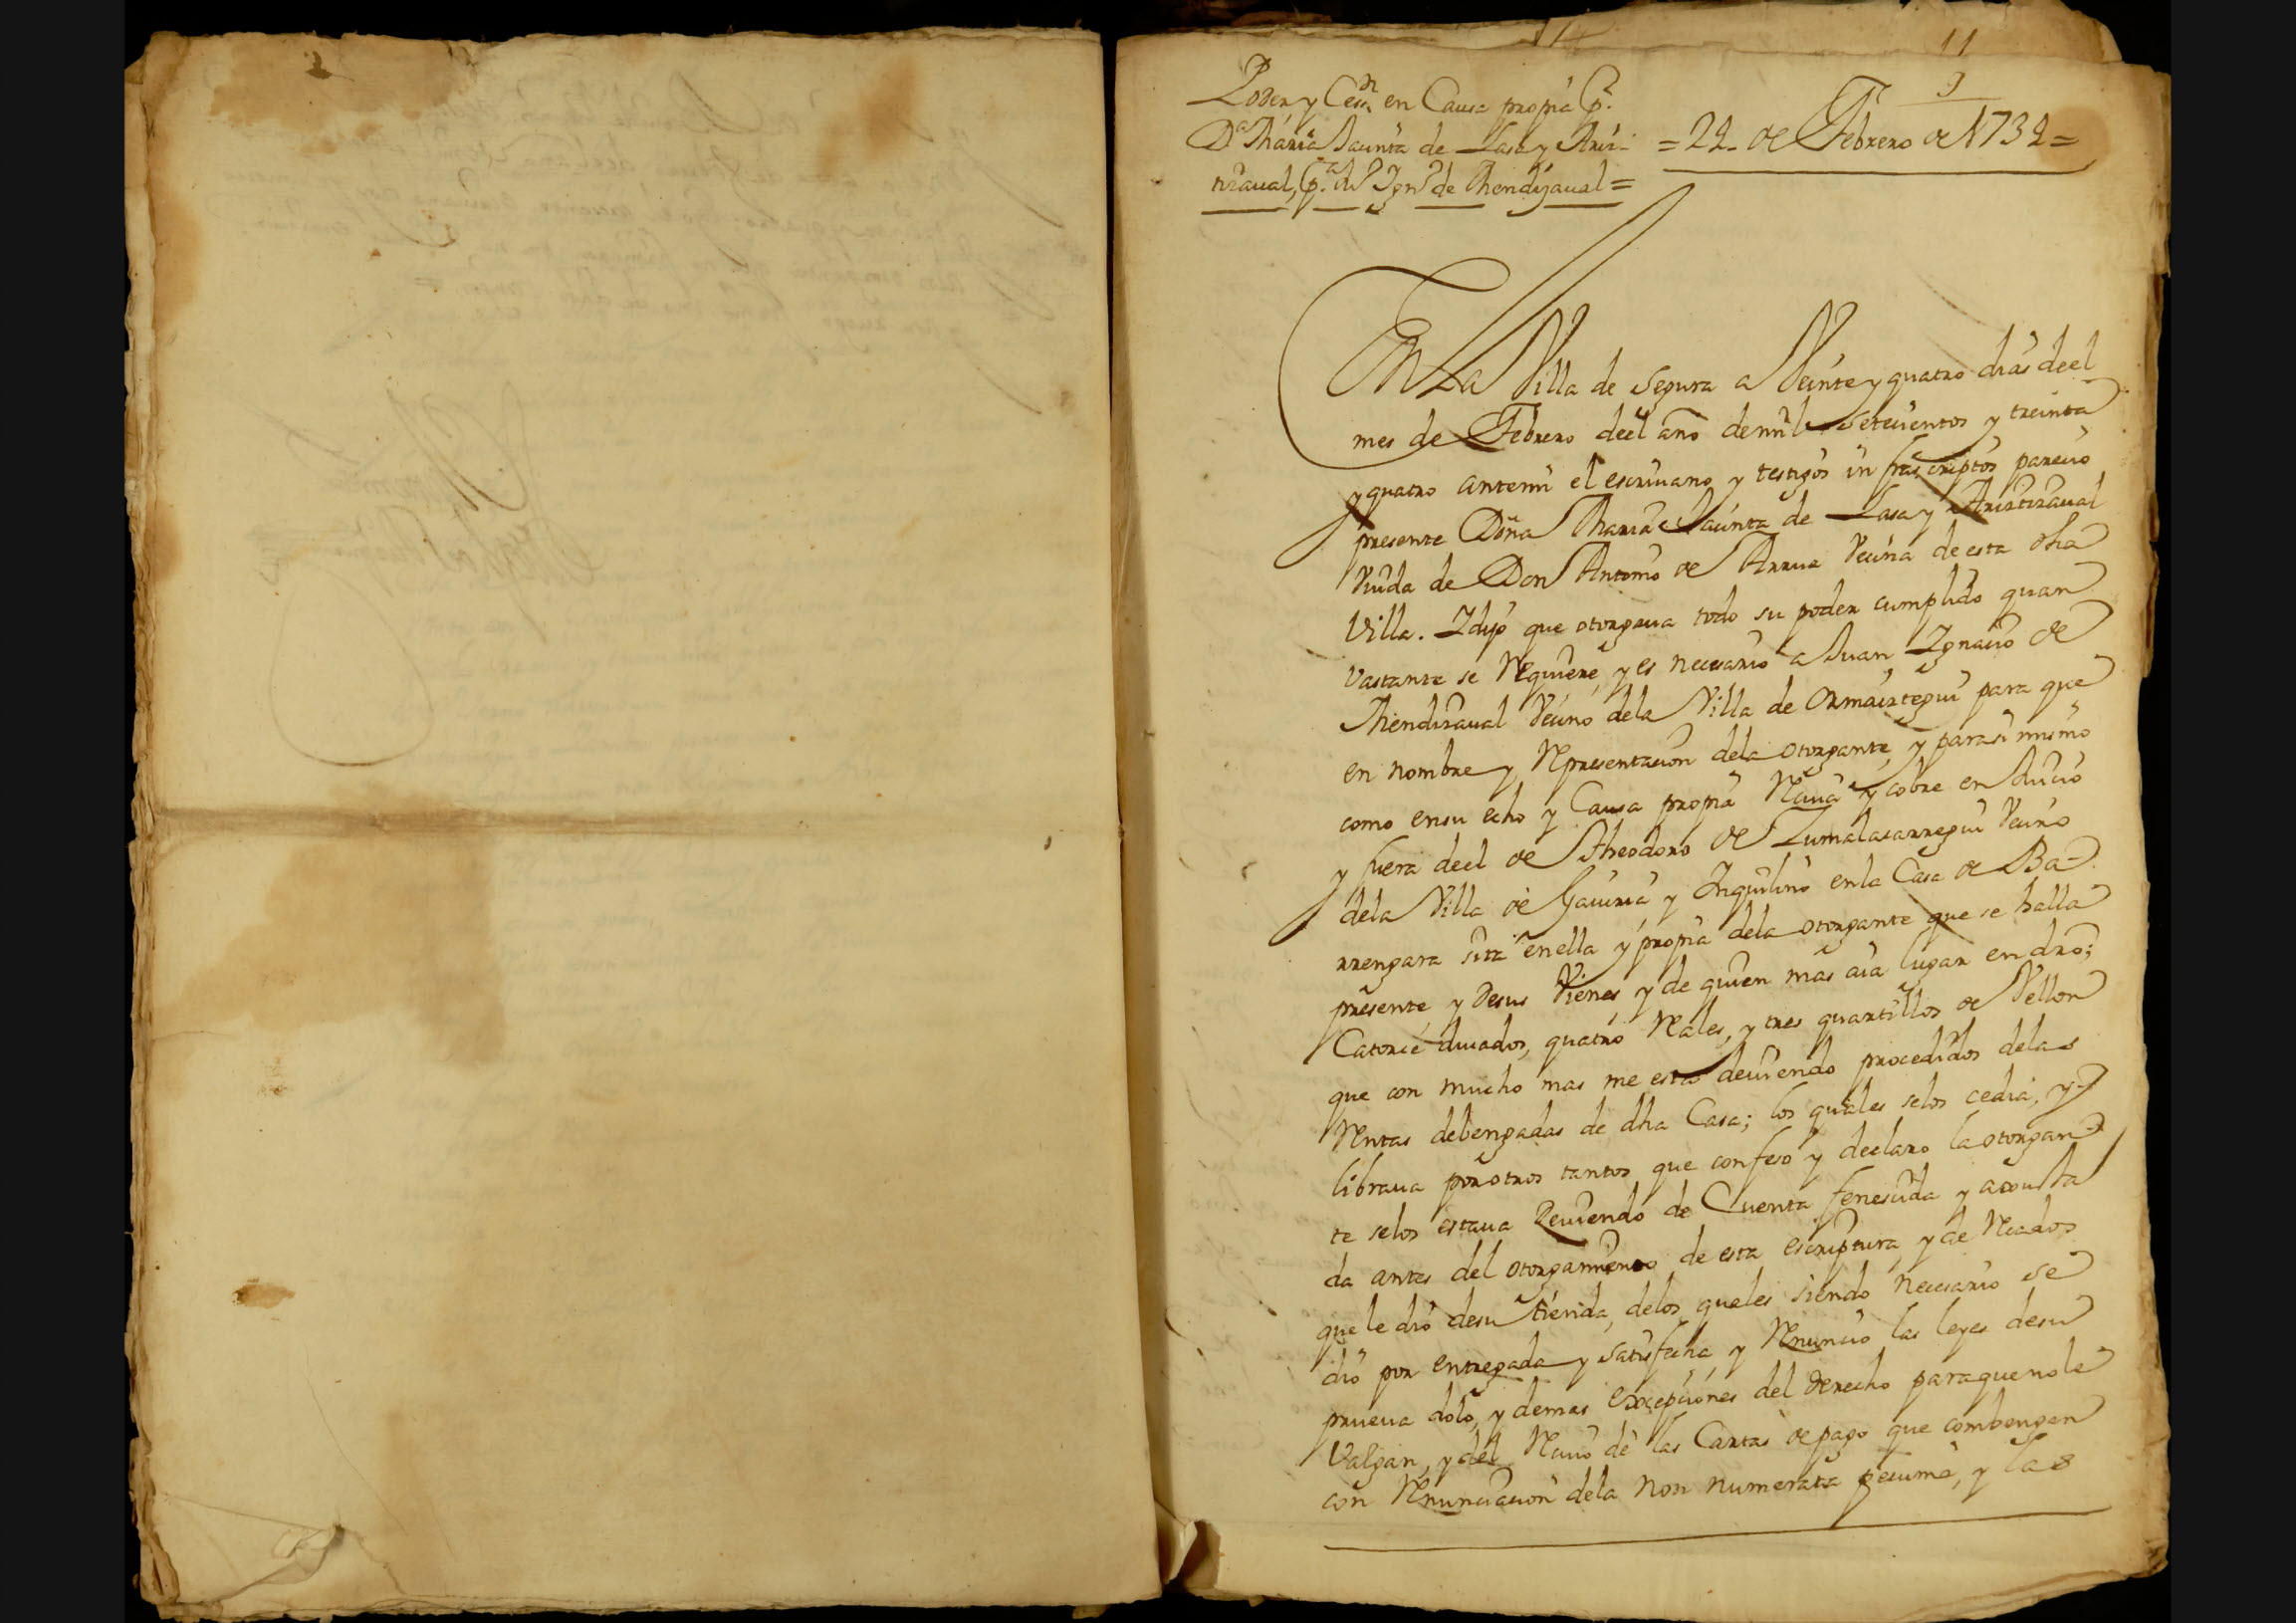 11
9
Poder y Cesn en Causa propia pr.
Da Maria Jacinta de Lasa y Ariz-
tizaual, pa. Jn Ignº de Mendizaual =
= 24 de Febrero de 1734 =
En La Villa de Segura a Veinte y quatro dias deel
mes de Febrero deel año demil setecientos y treinta
y quatro antemi el escriuano y testigos infrascriptos parecio
presente Doña Maria Jacinta de Lasa y Ariztizaual
Viuda de Don Antonio de Arrue Vecina de esta dha
Villa. I dijo que otorgaua todo su poder cumplido quan
vastante se Requiere, y es necesario a Juan Ignacio de
Mendizaual Vecino dela Villa de Ormaiztegui para que
en nombre y Representacion dela otorgante, y parasi mismo
como ensu echo y Causa propia Reciua y cobre en Juicio
y fuera deel de Theodoro de Zumalacarregui Vecino
dela Villa de Gauiria y Inquilino enla Casa de Ba-
rrengara sita enella y propia dela otorgante que se halla
presente y Desus Vienes y de quien mas aia lugar en dro;
Catorce ducados, quatro Reales, y tres quartillos de Vellon
que con mucho mas me esta deuiendo procedidos delas
Rentas debengadas de dha Casa; los quales selos cedia, y
libraua porotros tantos que confeso y declaro la otorgan-
te selos estaua Deuiendo de Cuenta fenecida y aiousta
da antes del otorgamiento de esta escriptura, y de Recados
que le dio desu tienda, delos quales siendo necesario se
dio por entregada y satisfecha, y Renuncio las leyes desu
prueua dolo, y demas excepciones del derecho paraquenole
Valgan, y del Reciuo de las Cartas de pago que combengan
con Renunciacion dela non numerata pecunia, y las